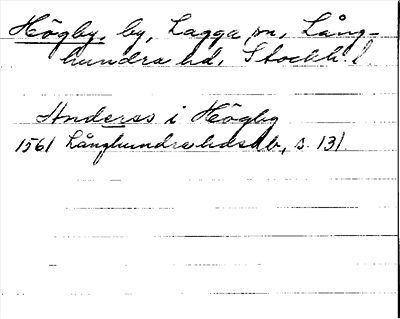 Högby, by, Lagga sn, Lång-
hundra hd. Stockh. l.
Anderss i Högby
1561 Långhundra hds db, s 131